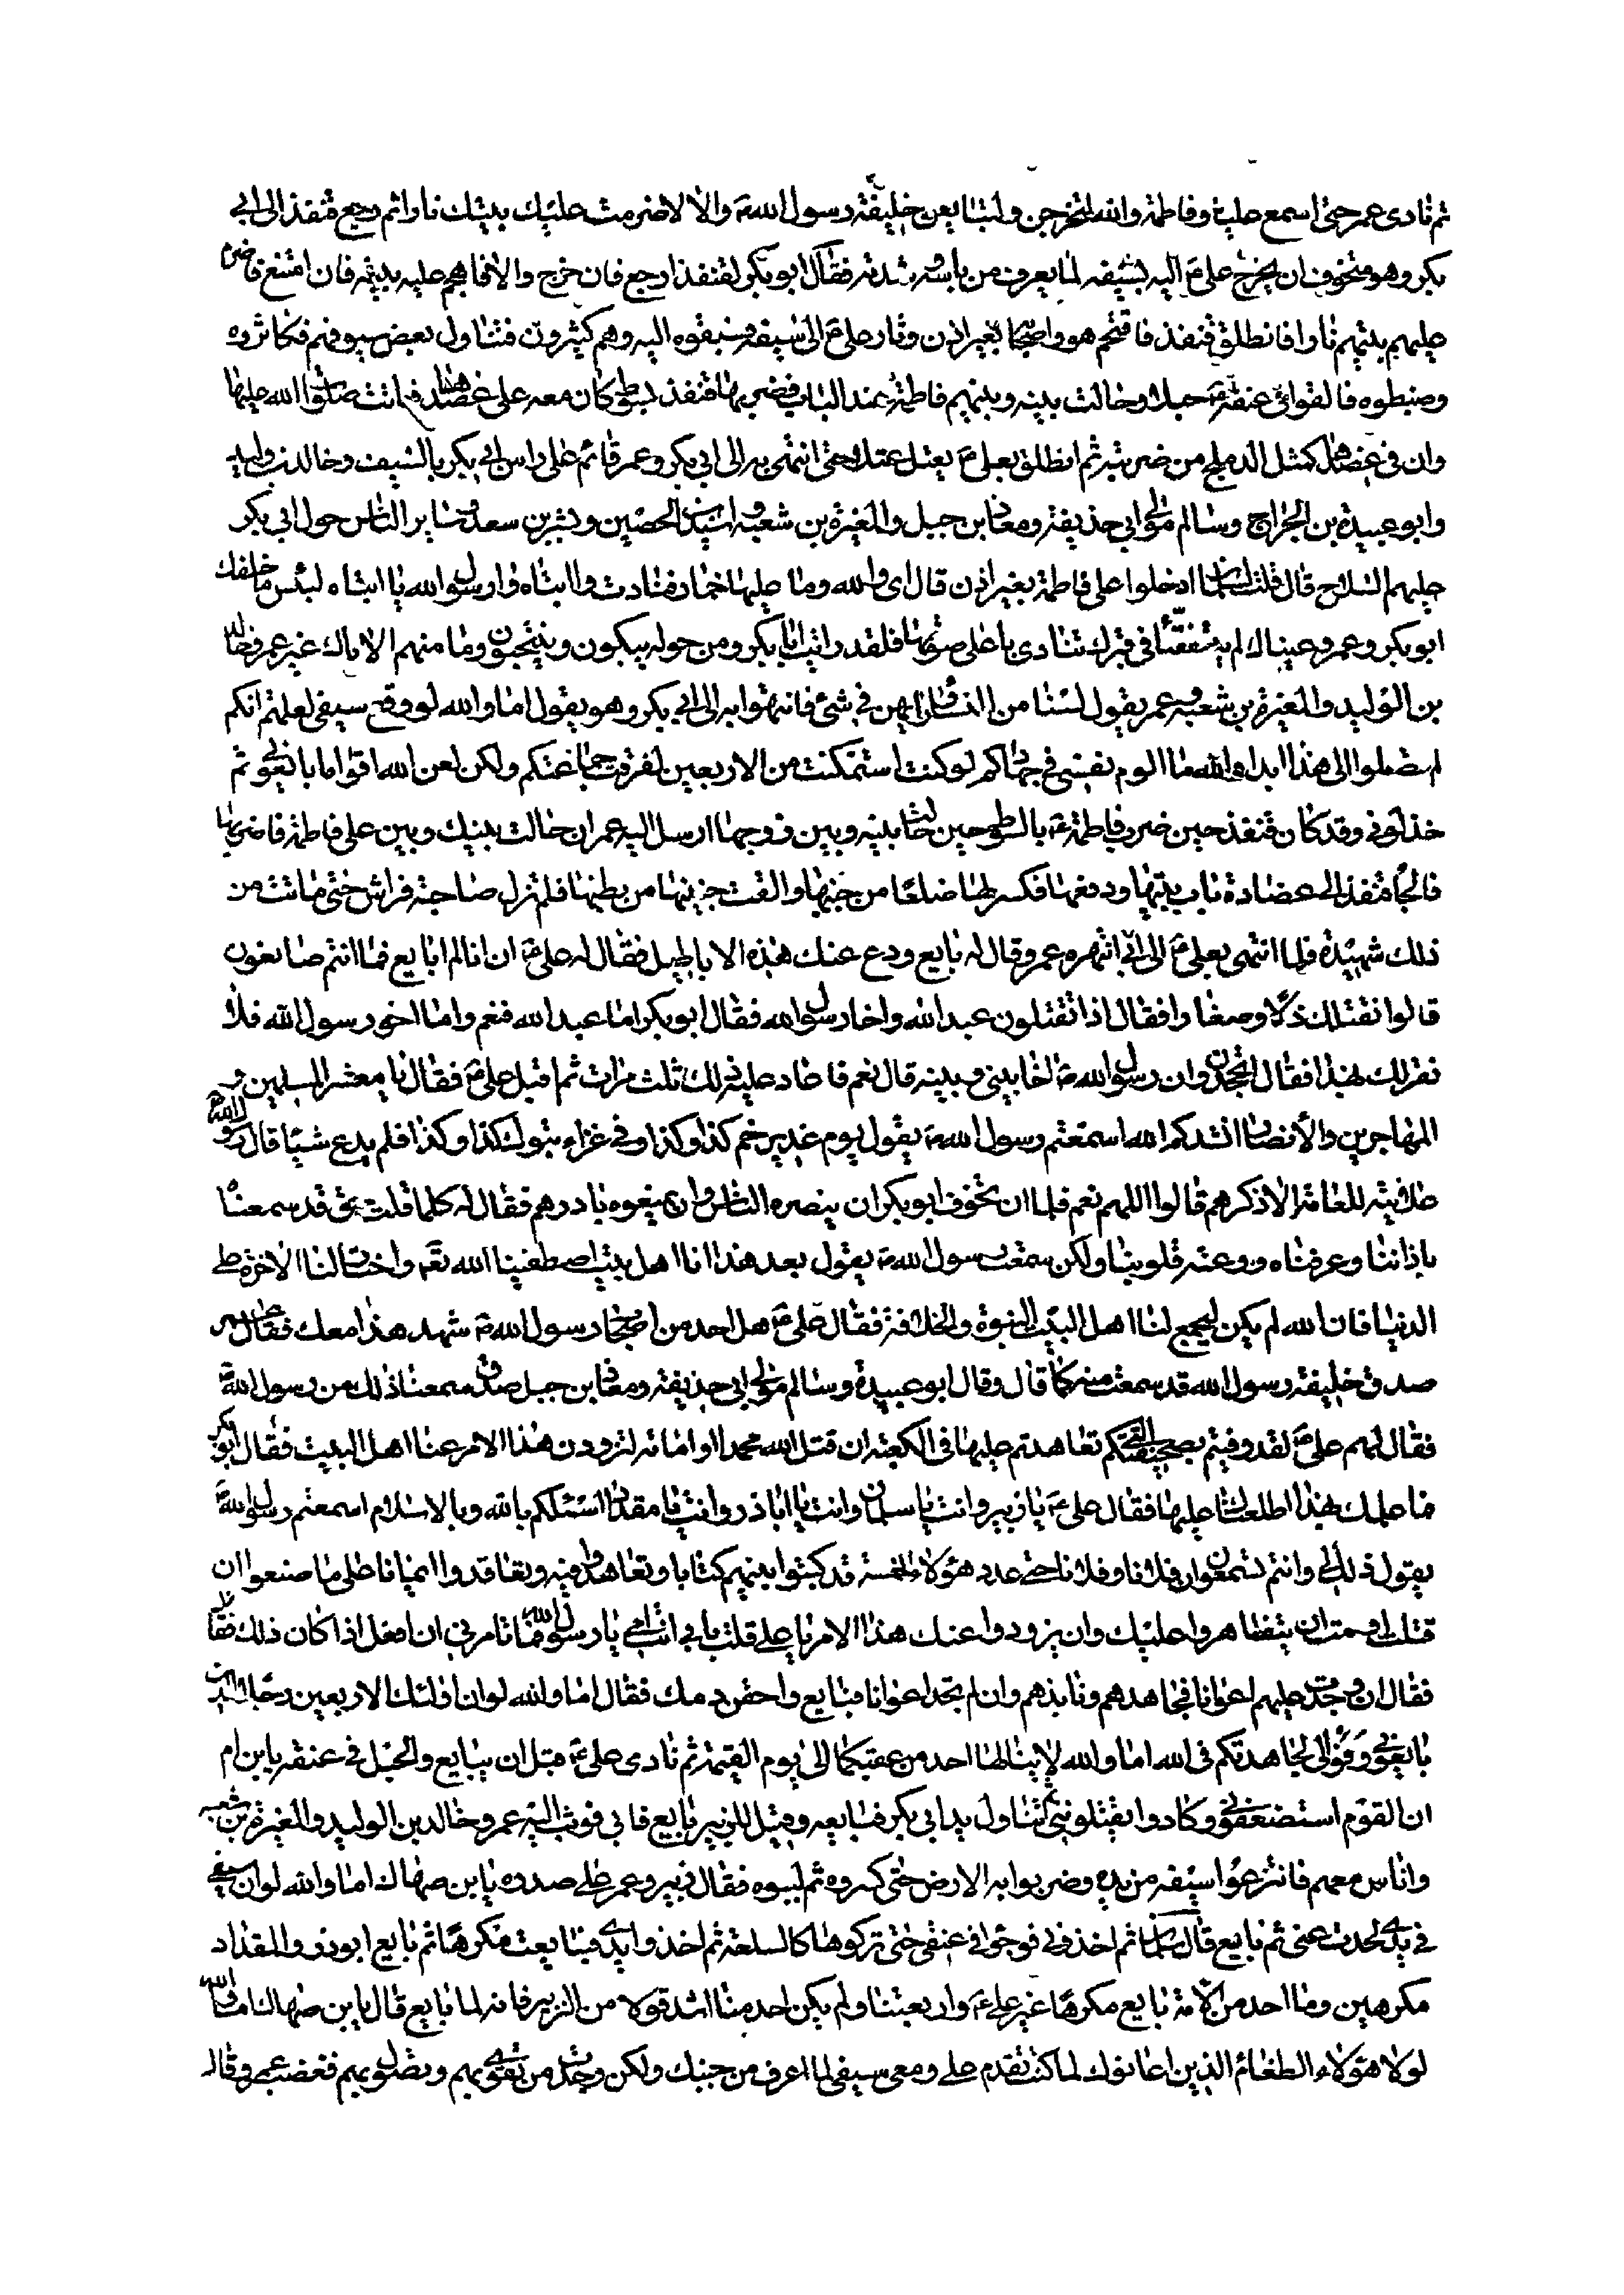 ثم نادى عمر حتى اسمع عليا و فاطمة والله لتخرجن ولتبايعن خليفة رسول الله ص والا لاضرمت عليك بيتك نارا ثم رجع قنفذ الى ابى
بكر وهو متخوف ان يخرج على ع اليه بسيفه لما يعرف من باسه وشدته فقال ابو بكر لقنفذ ارجع فان خرج والا فاهجم عليه بيته فان امتنع فاضرم
عليهم بيتهم نارا فانطلق قنفذ فاقتحم هو واصحابه بغير اذن وثار على ع الى سيفه فسبقوه اليه وهم كثيرون فتناول بعض سيوفهم فكاثروه
وضبطوه فالقوا فى عنقه حبلا وحالت بينه وبينهم فاطمة عند الباب فضربها قنفذ بسوط كان معه على عضدها فماتت صلوات الله عليها
وان فى عضدها كمثل الدملج من ضربته ثم انطلق بعلى ع يعتل عتلا حتى انتهى به الى ابى بكر وعمر قائم على راس ابى بكر بالسيف وخالد بن وليد
وابو عبيدة بن الجراح وسالم مولى ابى حذيفة ومعاذ بن جبل والمغيرة بن شعبه واسيد بن الحصين وبشر بن سعد وساير الناس حول ابى بكر
عليهم السلاح قال قلت لسلمان ادخلوا على فاطمة بغير اذن قال اى والله وما عليها خمار فنادت وا ابتاه وا رسول الله يا ابتاه لبئس ما خلفك
ابو بكر وعمر وعيناك لم تتفقئا فى قبرك تنادى باعلى صوتها فلقد رايت ابا بكر ومن حوله يبكون وينتحبون وما منهم الا باك غير عمر وخالد
بن الوليد والمغيرة بن شعبه وعمر يقول لسنا من النساء ورايهن فى شئ فانتهوا به الى ابى بكر وهو يقول اما والله لو وقع سيفى لعلمتم انكم
لم تصلوا الى هذا ابدا والله ما الوم نفسى فى جهادكم لو كنت استمكنت من الاربعين لفرقت جماعتكم ولكن لعن الله اقواما بايعونى ثم
خذلونى وقد كان قنفذ حين ضرب فاطمة ع بالسوط حين حالت بينه وبين زوجها ارسل اليه عمر ان حالت بينك وبين على فاطمة فاضربها
فالجأ قنفذ الى عضادة باب بيتها ودفعها فكسر لها ضلعا من جنبها والقت جنينها من بطنها فلم تزل صاحبة فراش حتى ماتت من
ذلك شهيدة فلما انتهى بعلى ع الى ابى انتهره عمر وقال له بايع ودع عنك هذه الاباطيل فقال له على ع ان انا لم ابايع فما انتم صانعون
قالوا نقتلك ذلا وصغارا فقال اذا تقتلون عبد الله واخا رسول الله فقال ابو بكر اما عبد الله فنعم واما اخو رسول الله فلا
نقر لك بهذا فقال اتجحدون ان رسول الله ص اخا بينى وبينه قال نعم فاعاد عليه ذلك ثلث مرات ثم اقبل على ع فقال يا معشر المسلمين و
المهاجرين والأنصار انشدكم الله اسمعتم رسول الله ص يقول يوم غدير خم كذا وكذا وفى غزاه تبوك كذا وكذا فلم يدع شيئا قال رسول الله
علانيته للعامة الا ذكرهم قالوا اللهم نعم فلما ان تخوف ابو بكر ان ينصره الناس وان يمنعوه بادرهم فقال له كلما قلت حق قد سمعناه
باذاننا وعرفناه ووعته قلوبنا ولكن سمعت رسول الله ص يقول بعد هذا انا اهل بيت اصطفينا الله تعم واختار لنا الاخرة على
الدنيا فان الله لم يكن ليجمع لنا اهل البيت النبوة والخلافة فقال على ع هل احد من اصحاب رسول الله ص شهد هذا معك فقال عمر
صدق خليفة رسول الله قد سمعت منه كما قال وقال ابو عبيدة وسالم مولى ابى حذيفة ومعاذ بن جبل صدق سمعنا ذلك من رسول الله ص
فقال لهم على ع لقد وفيتم بصحيفتكم التى تعاهدتم عليها فى الكعبة ان قتل الله محمدا او اماته لتزودن هذا الامر عنا اهل البيت فقال ابو بكر
فما علمك بهذا اطلعناك عليها فقال على ع يا زبير وانت يا سلمان وانت يا اباذر وانت يا مقداد اسئلكم بالله وبالاسلام اسمعتم رسول الله ص
يقول ذلك لى وانتم تسمعون ان فلانا وفلانا حتى عدد هؤلاء الخمسة قد كتبوا بينهم كتابا وتعاهدوا فيه وتعاقدوا ايمانا على ما صنعوا ان
قتلت او مت ان يتظاهروا عليك وان يزودوا عنك هذا الامر يا على قلت بابى انت وامى يا رسول الله فما تامرنى ان افعل اذا كان ذلك فقال
فقال ان وجدت عليهم اعوانا فجاهدهم ونابذهم وان لم تجد اعوانا فبايع واحقن دمك فقال اما والله لو ان اولئك الاربعين رجلا الذين
بايعونى وفوا لى لجاهدتكم فى الله اما والله لا ينالها احد من عقبكما الى يوم القيمة ثم نادى على ع قبل ان يبايع والحبل فى عنقه يا ابن ام
ان القوم استضعفونى وكادوا يقتلوننى ثم تناول يد ابى بكر فبايعه وقيل للزبير بايع فابى فوثب اليه عمر وخالد بن الوليد والمغيرة بن شعبه
واناس معهم فانتزعوا سيفه من يده وضربوا به الارض حتى كسروه ثم لببوه فقال زبير وعمر على صدره يا بن صهاك اما والله لو ان سيفى
فى يدى لحدت عنى ثم بايع قال سلمان ثم اخذونى فوجئوا فى عنقى حتى تركوها كالسلعة ثم اخذوا يدى فبايعت مكرها ثم بايع ابوذر والمقداد
مكرهين وما احد من الامة بايع مكرها غير على ع واربعتنا ولم يكن احد منا اشد قولا من الزبير فانه لما بايع قال يا بن صهاك اما والله
لولا هؤلاء الطغام الذين اعانوك لما كنت تقدم على ومعى سيفى لما اعرف من جبنك ولكن وجدت من تقوى بهم وتصول بهم فغضب عمر وقال